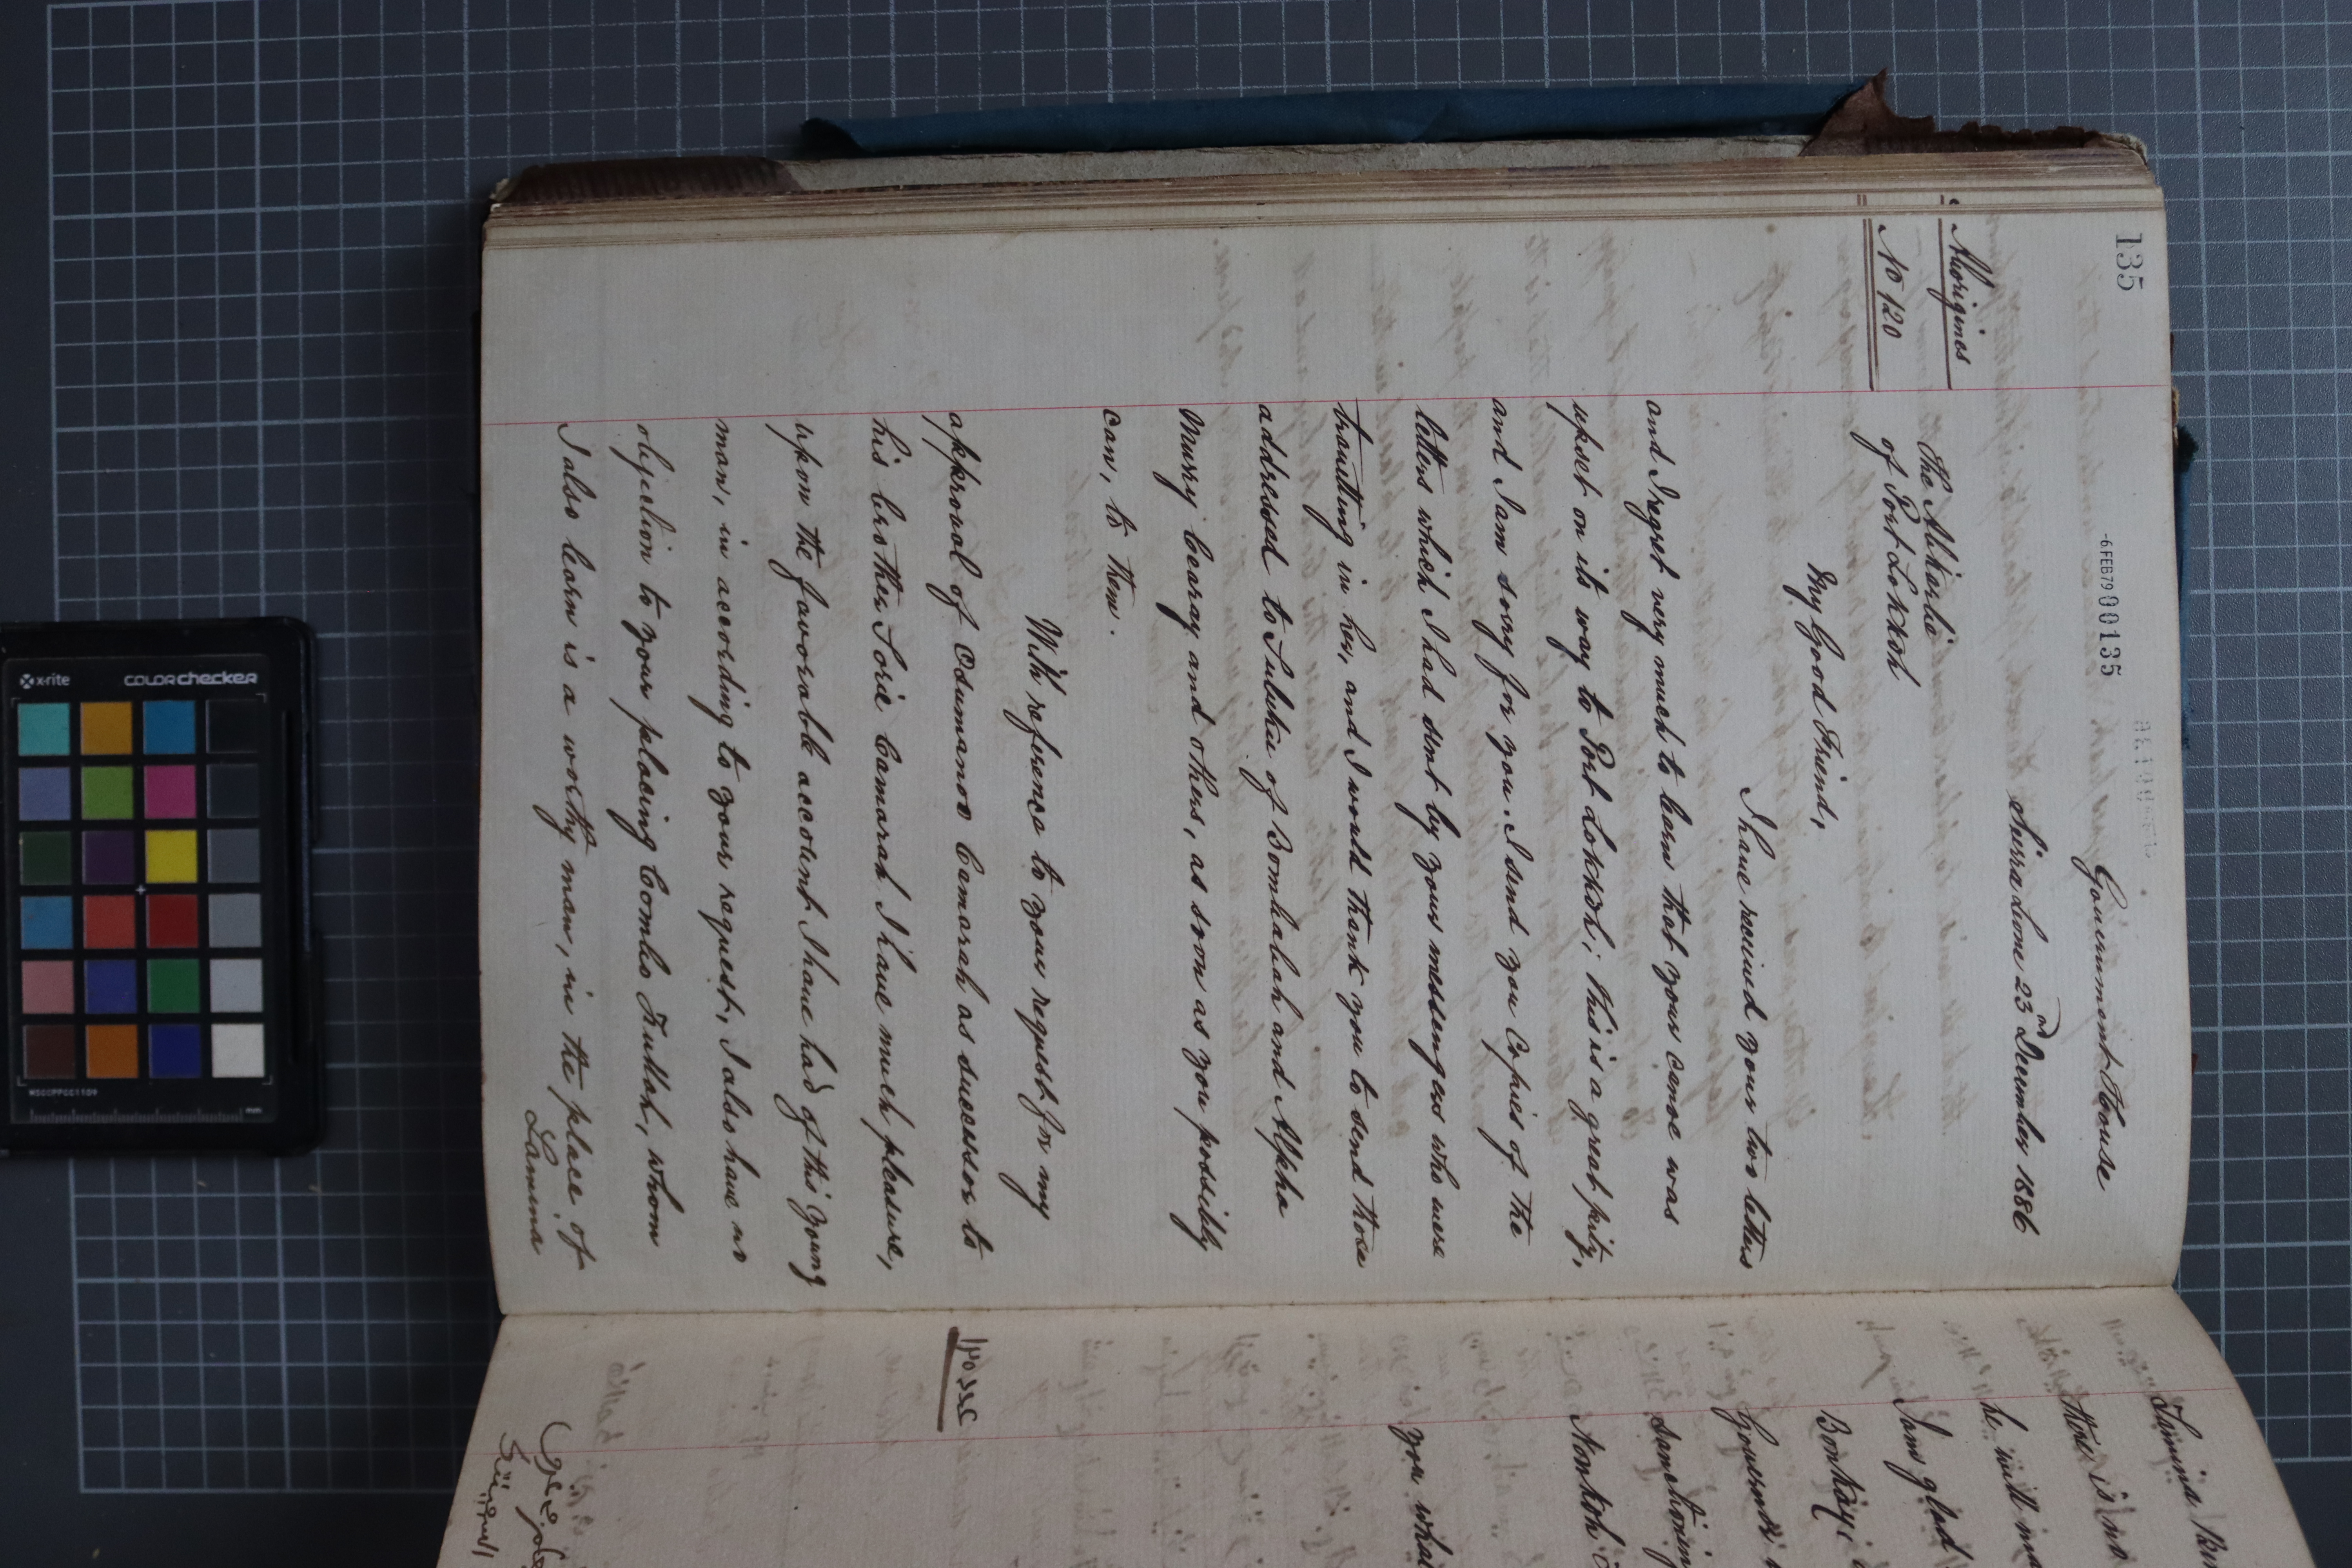 135
-6FEB79 00135
Government House
Sierra Leone 23rd December 1886
Aborigines
No 120
The Alikarlie
of Port Lokkoh
My Good Friend,
I have received your two letters
and I regret very much to learn that your canoe was
upset on its way to Port Lokkoh; this is a great pity,
and I am sorry for you. I send you Copies of the
letters which I had sent by your messengers who were
travelling in her, and I would thank you to send those
addressed to Suluku of Bombalah and Alpha
Murry Cearay and others, as soon as you possibly
can, to them.
With reference to your request for my
approval of Osumanoo Camarah as successor to
his brother Sorie Camarah I have much pleasure,
upon the favorable account I have had of this young
man, in according to your request, I also have no
objection to your placing Combo Fullah, whom
I also learn is a worthy man, in the place of
Lamina
Lamina
there is no
he will
I am glad
Bonkayi
Government
sanctioning
Nonkoh
you
x-rite
COLORchecker
MSCCPPCC1109
mm